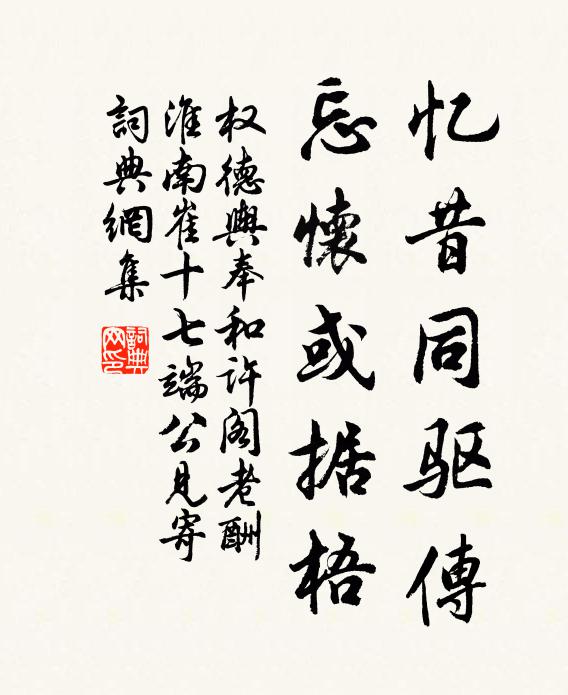 忆昔同驱傳
忘懷或据梧
权德輿奉和许阁老酬
淮南崔十七端公見寄
詞典網集
詞典网印